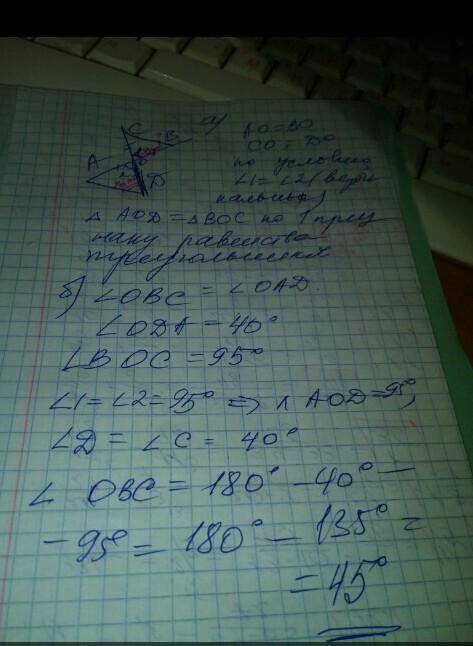 а)
C
B
A
D
1
2
AO=BO
CO = DO
по условию
∠1=∠2 (верти
кальные)
△ AOD = △BOC по 1 приз
наку равенства
треугольников
б) ∠OBC = ∠OAD.
∠ODA = 40°
∠BOC = 95°
∠1=∠2=95° => ∧ AOD=95°,
∠D = ∠C = 40°
∠ OBC = 180° - 40° -
- 95° = 180° - 135° =
= 45°